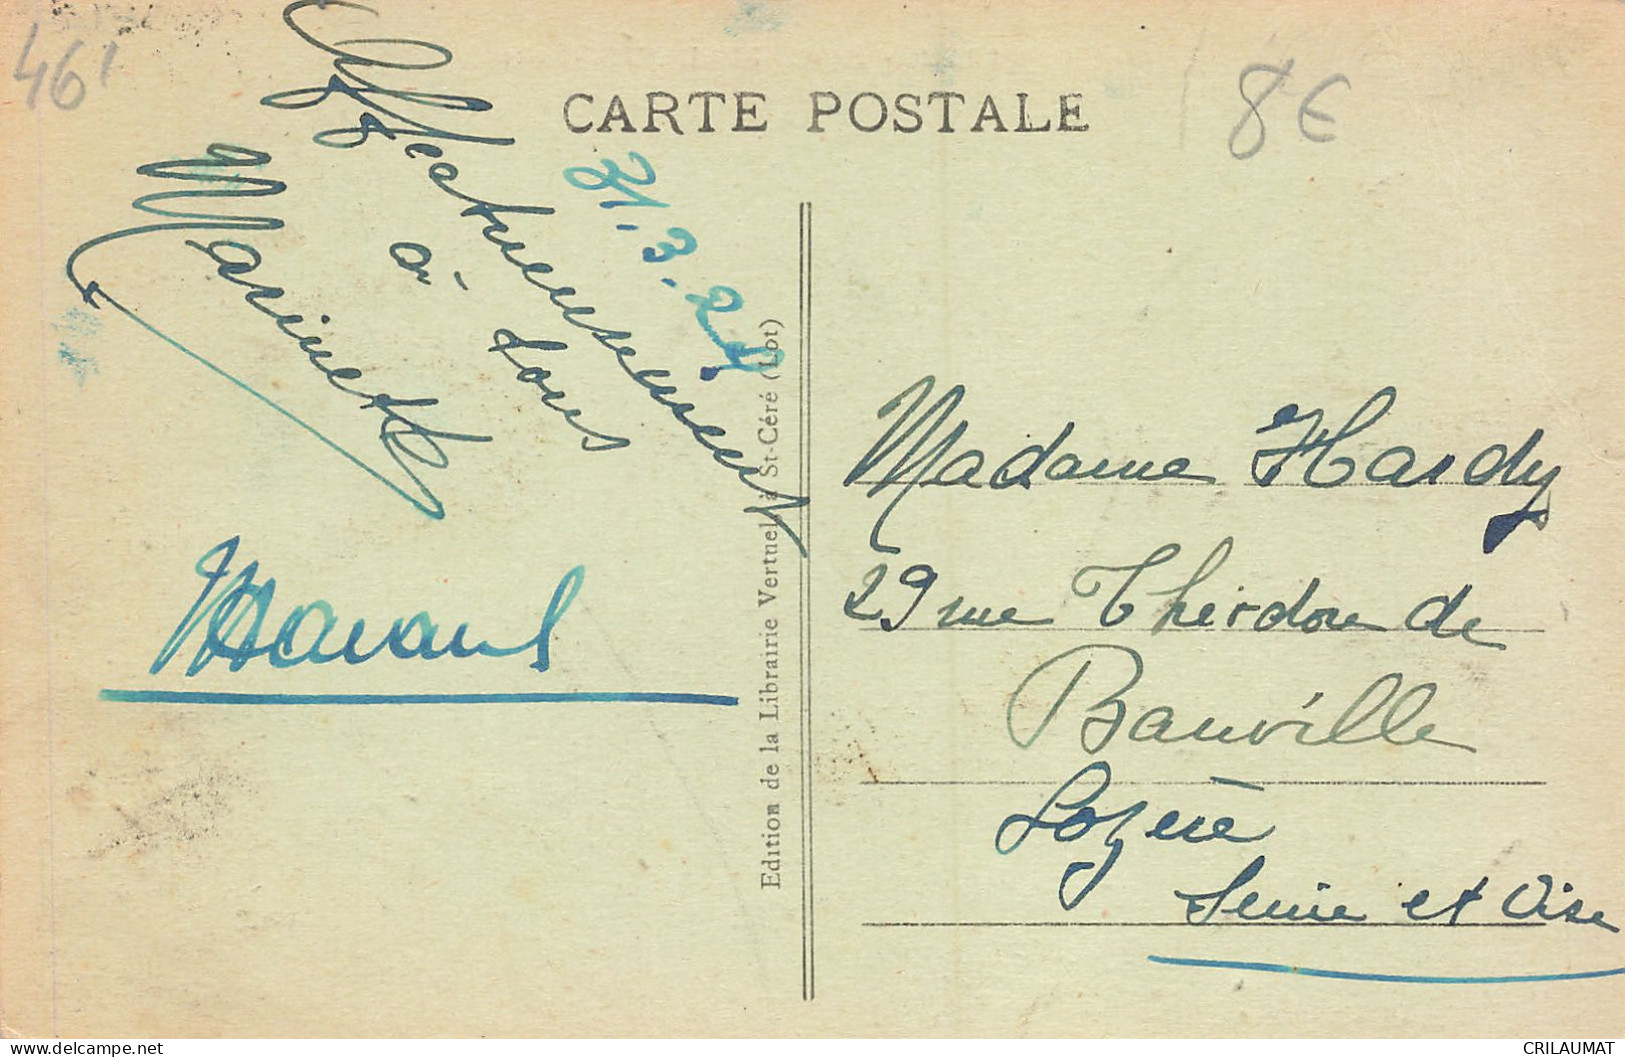 46
8€
CARTE POSTALE
31.3.24
Affectueusement
à tous
Marinette
Edition de la Librairie Vertuel, à St-Céré (Lot)
Madame Hardy
29 rue de
Banville
Lozère
Seine et Oise
CRILAUMAT
delcampe.net